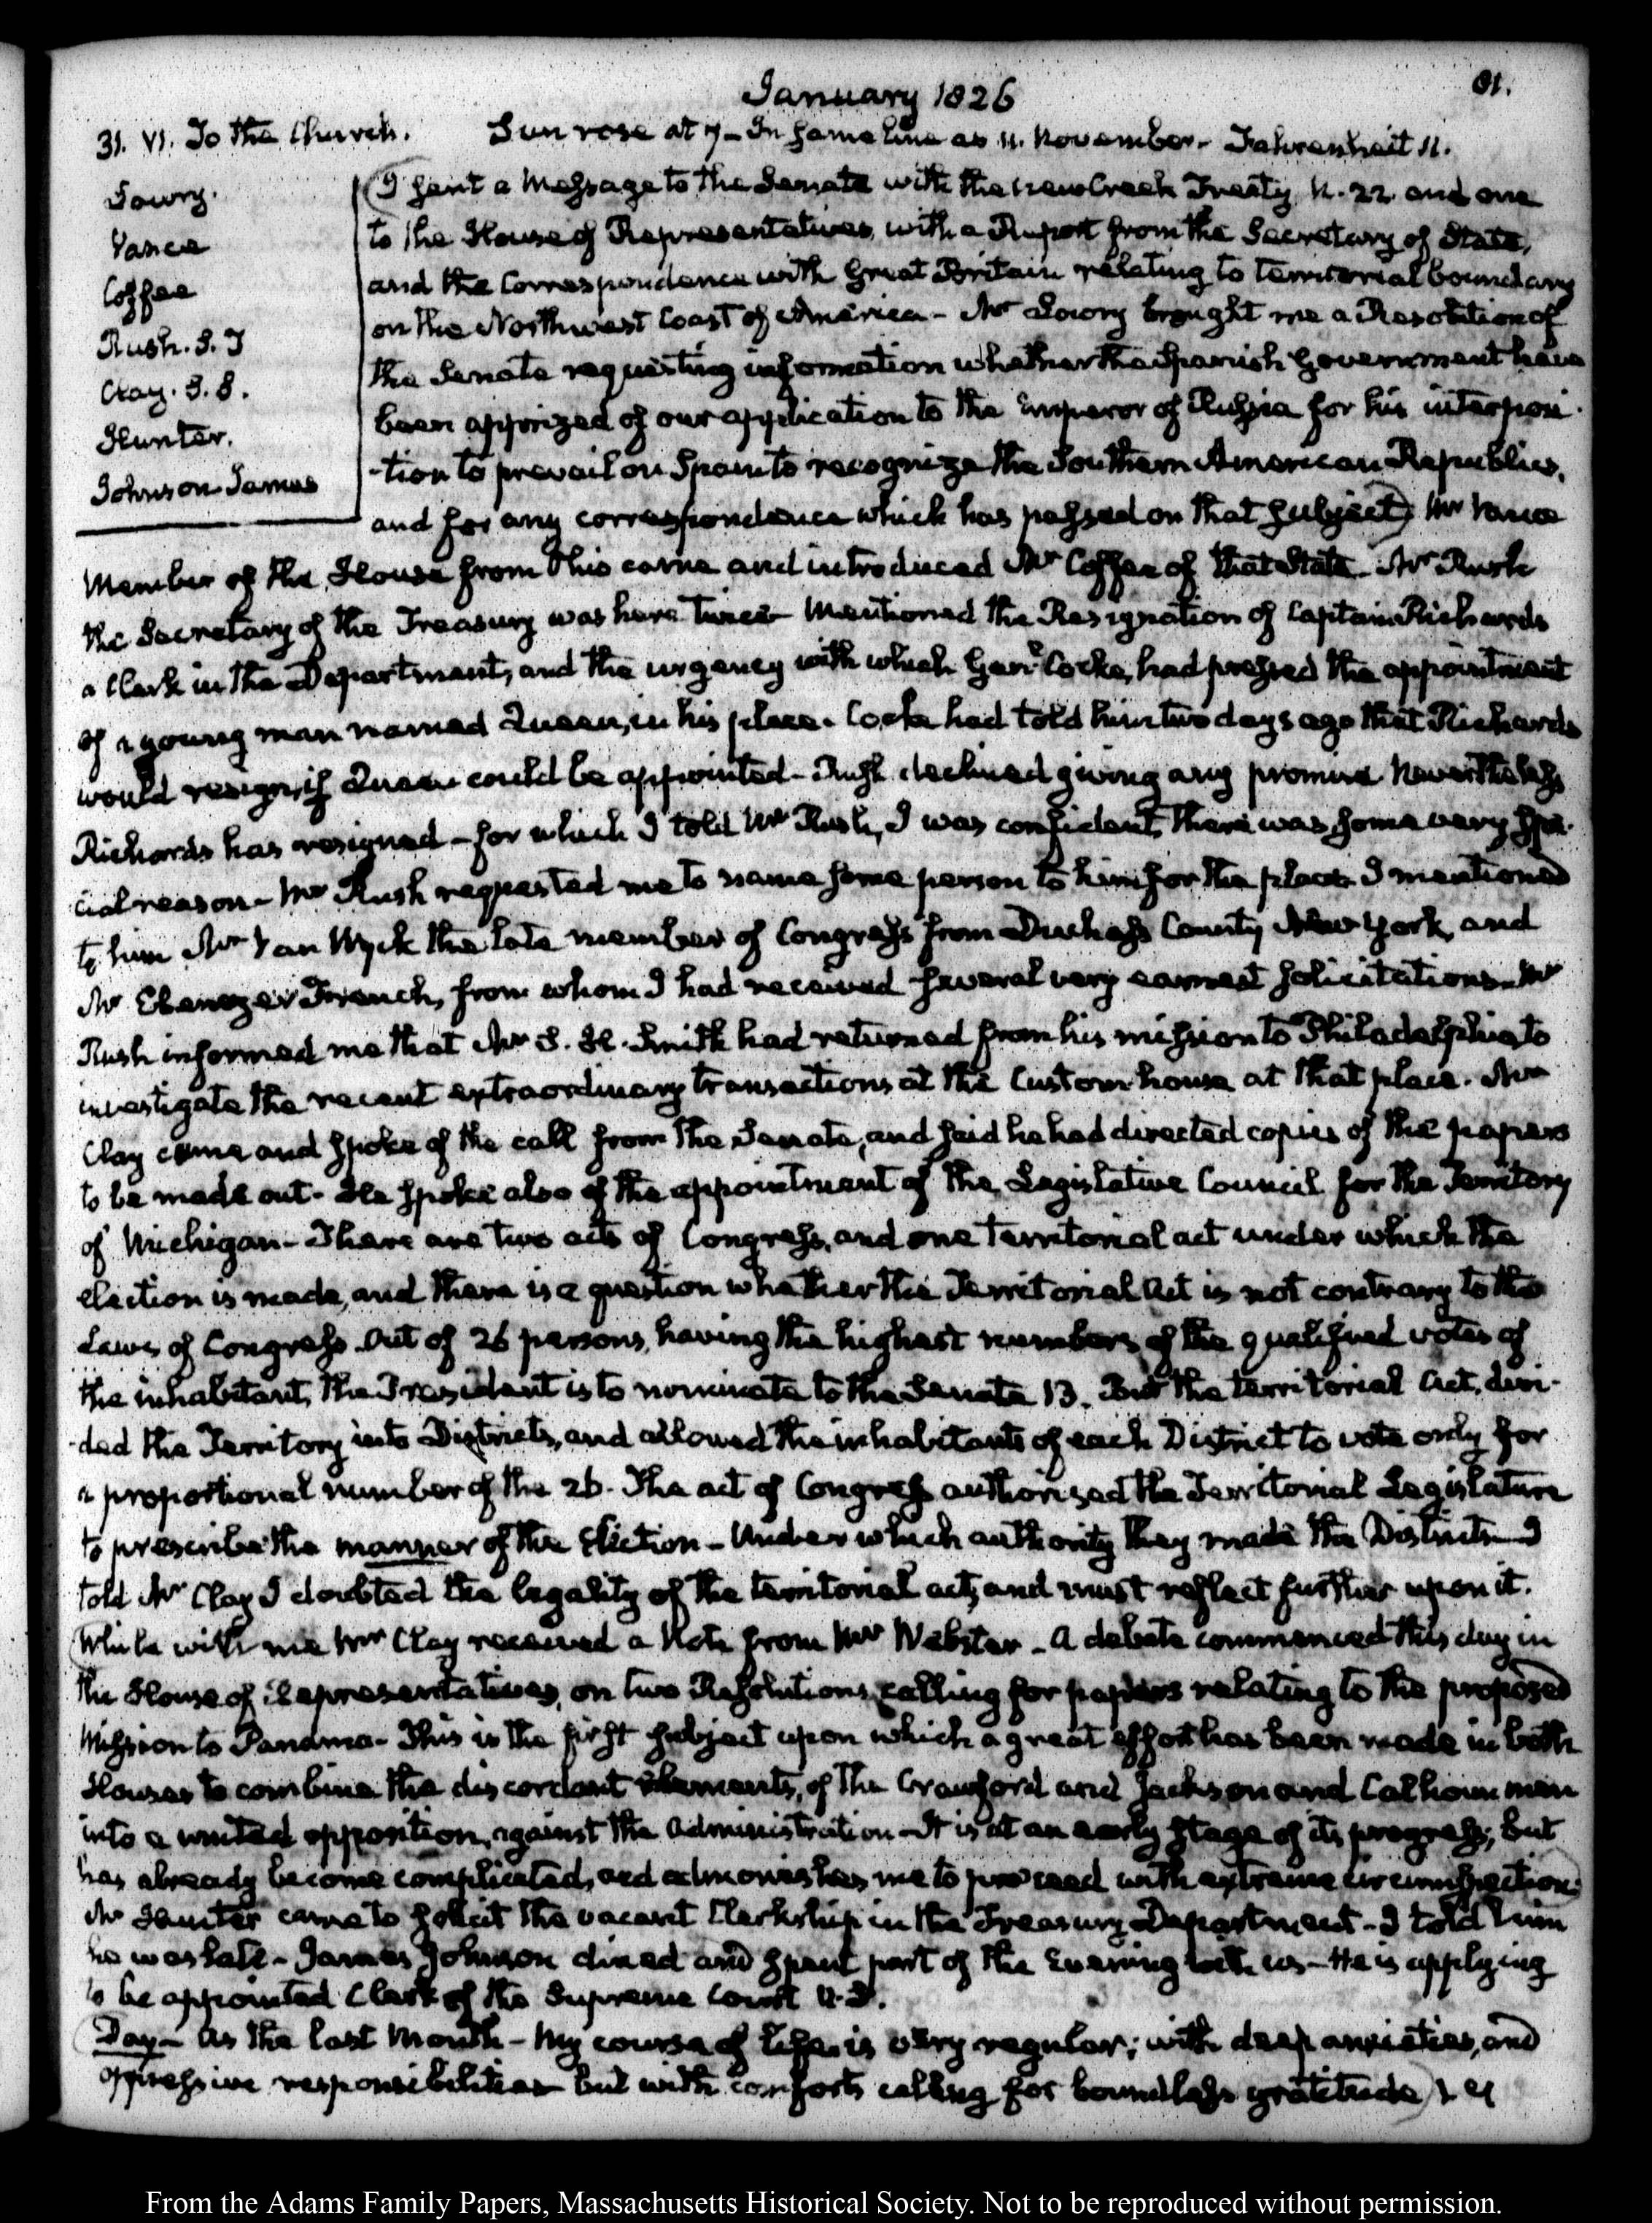 January 1826
81.
31. VI. To the Church. Sun rose at 7 - In same line as 11. November - Fahrenheit 11.
Lowry.
Vance
Coffee
Rush. S. T
Clay. S. S.
Hunter.
Johnson James
I sent a Message to the Senate with the new Creek Treaty N. 22. and one
to the House of Representatives, with a Report from the Secretary of State,
and the Correspondence with Great Britain relating to territorial boundary
on the Northwest Coast of America - Mr Lowry brought me a Resolution of
the Senate requesting information whether the Spanish Government have
been apprized of our application to the Emperor of Russia for his interposi-
-tion to prevail on Spain to recognize the Southern American Republics,
and for any correspondence which has passed on that subject) Mr Vance
Member of the House from Ohio came and introduced Mr Coffee of that State. Mr Rush
the Secretary of the Treasury was here twice - Mentioned the Resignation of Captain Richards
a Clerk in the Department, and the urgency with which Genl. Cocke, had pressed the appointment
of a young man named Queen, in his place. Cocke had told him two days ago that Richards
would resign, if Queen could be appointed - Rush declined giving any promise Nevertheless
Richards has resigned - for which I told Mr Rush, I was confident, there was some very spe-
cial reason - Mr Rush requested me to name some person to him for the place - I mentioned
to him Mr Van Wyck the late member of Congress from Duchess County New York, and
Mr Ebenezer French, from whom I had received several very earnest solicitations - Mr
Rush informed me that Mr S. H. Smith had returned from his mission to Philadelphia to
investigate the recent extraordinary transactions at the Custom-house at that place. Mr
Clay came and spoke of the call from the Senate, and said he had directed copies of the papers
to be made out - He spoke also of the appointment of the Legislative Council for the Territory
of Michigan - There are two acts of Congress, and one territorial act under which the
election is made, and there is a question whether the Territorial Act is not contrary to the
Laws of Congress. Out of 26 persons, having the highest numbers of the qualified votes of
the inhabitants, the President is to nominate to the Senate 13. But the territorial Act, divi-
-ded the Territory into Districts, and allowed the inhabitants of each District to vote only for
a proportional number of the 26. The act of Congress authorized the Territorial Legislature
to prescribe the manner of the Election - Under which authority they made the Districts - I
told Mr Clay I doubted the legality of the territorial act, and must reflect further upon it.
(While with me Mr Clay received a Note from Mr Webster - A debate commenced this day in
the House of Representatives, on two Resolutions calling for papers relating to the proposed
Mission to Panama - This is the first subject upon which a great effort has been made in both
Houses to combine the discordant elements, of the Crawford and Jackson and Calhoun men
into a united opposition, against the Administration - It is at an early stage of its progress; but
has already become complicated, and admonishes me to proceed with extreme circumspection)
Mr Hunter came to solicit the vacant Clerkship in the Treasury Department - I told him
he was late - James Johnson dined and spent part of the Evening with us - He is applying
to be appointed Clerk of the Supreme Court U.S.
(Day - As the last Month - My course of life is very regular; with deep anxieties, and
oppressive responsibilities but with comforts calling for boundless gratitude)
From the Adams Family Papers, Massachusetts Historical Society. Not to be reproduced without permission.